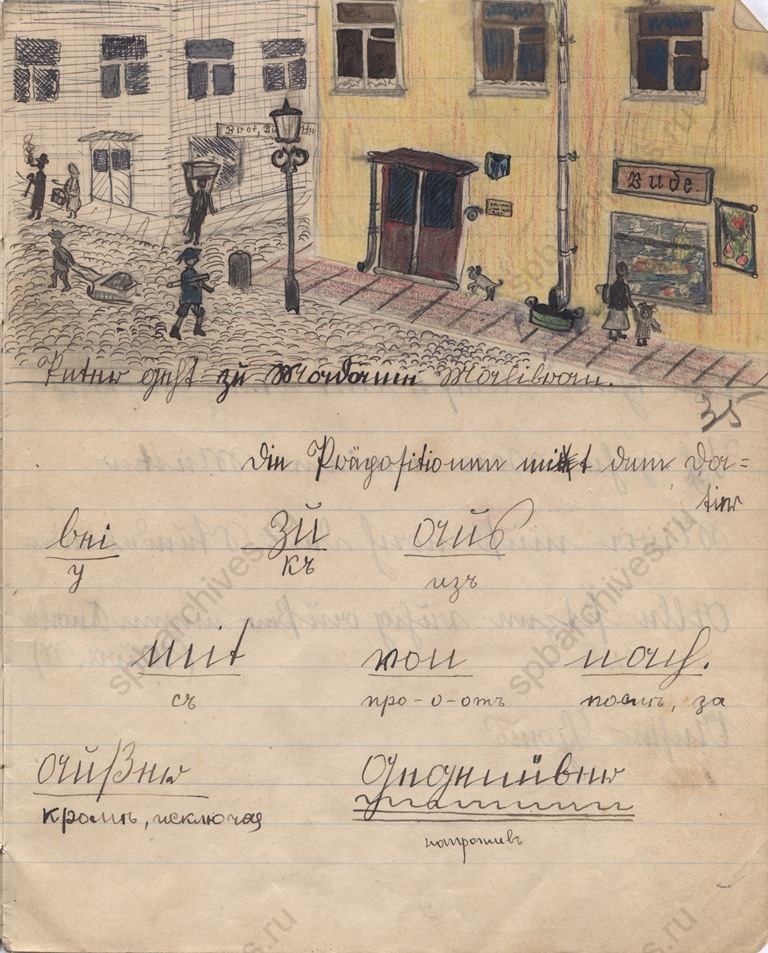 Brot,
Bude.
Peter geht zu Madame Malibran.
35
Die Präpositionen mit dem Da=
tiv
bei zu aus
у къ изъ
mit von nach.
съ про-о-отъ послѣ, за
außer gegenüber
кромѣ, исключая
напротивъ
spbarchives.ru